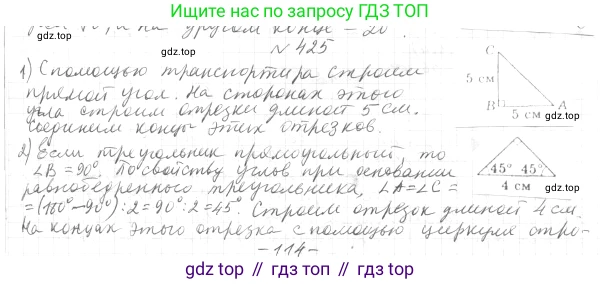 Ищите нас по запросу ГДЗ ТОП
gdz.top
и на другом конце - 20
gdz.top
gdz.top
№ 425
1) С помощью транспортира строим
прямой угол. На сторонах этого
угла строим отрезки длиной 5 см.
Соединим концы этих отрезков.
C
5 см
B
A
5 см
2) Если треугольник прямоугольный, то
∠B = 90°. По свойству углов при основании
равнобедренного треугольника, ∠A = ∠C =
= (180° - 90°) : 2 = 90° : 2 = 45°. Строим отрезок длиной 4 см.
На концах этого отрезка с помощью циркуля отро-
45° 45°
4 см
- 114 -
gdz.top
gdz.top
gdz.top // гдз.top // gdz.top